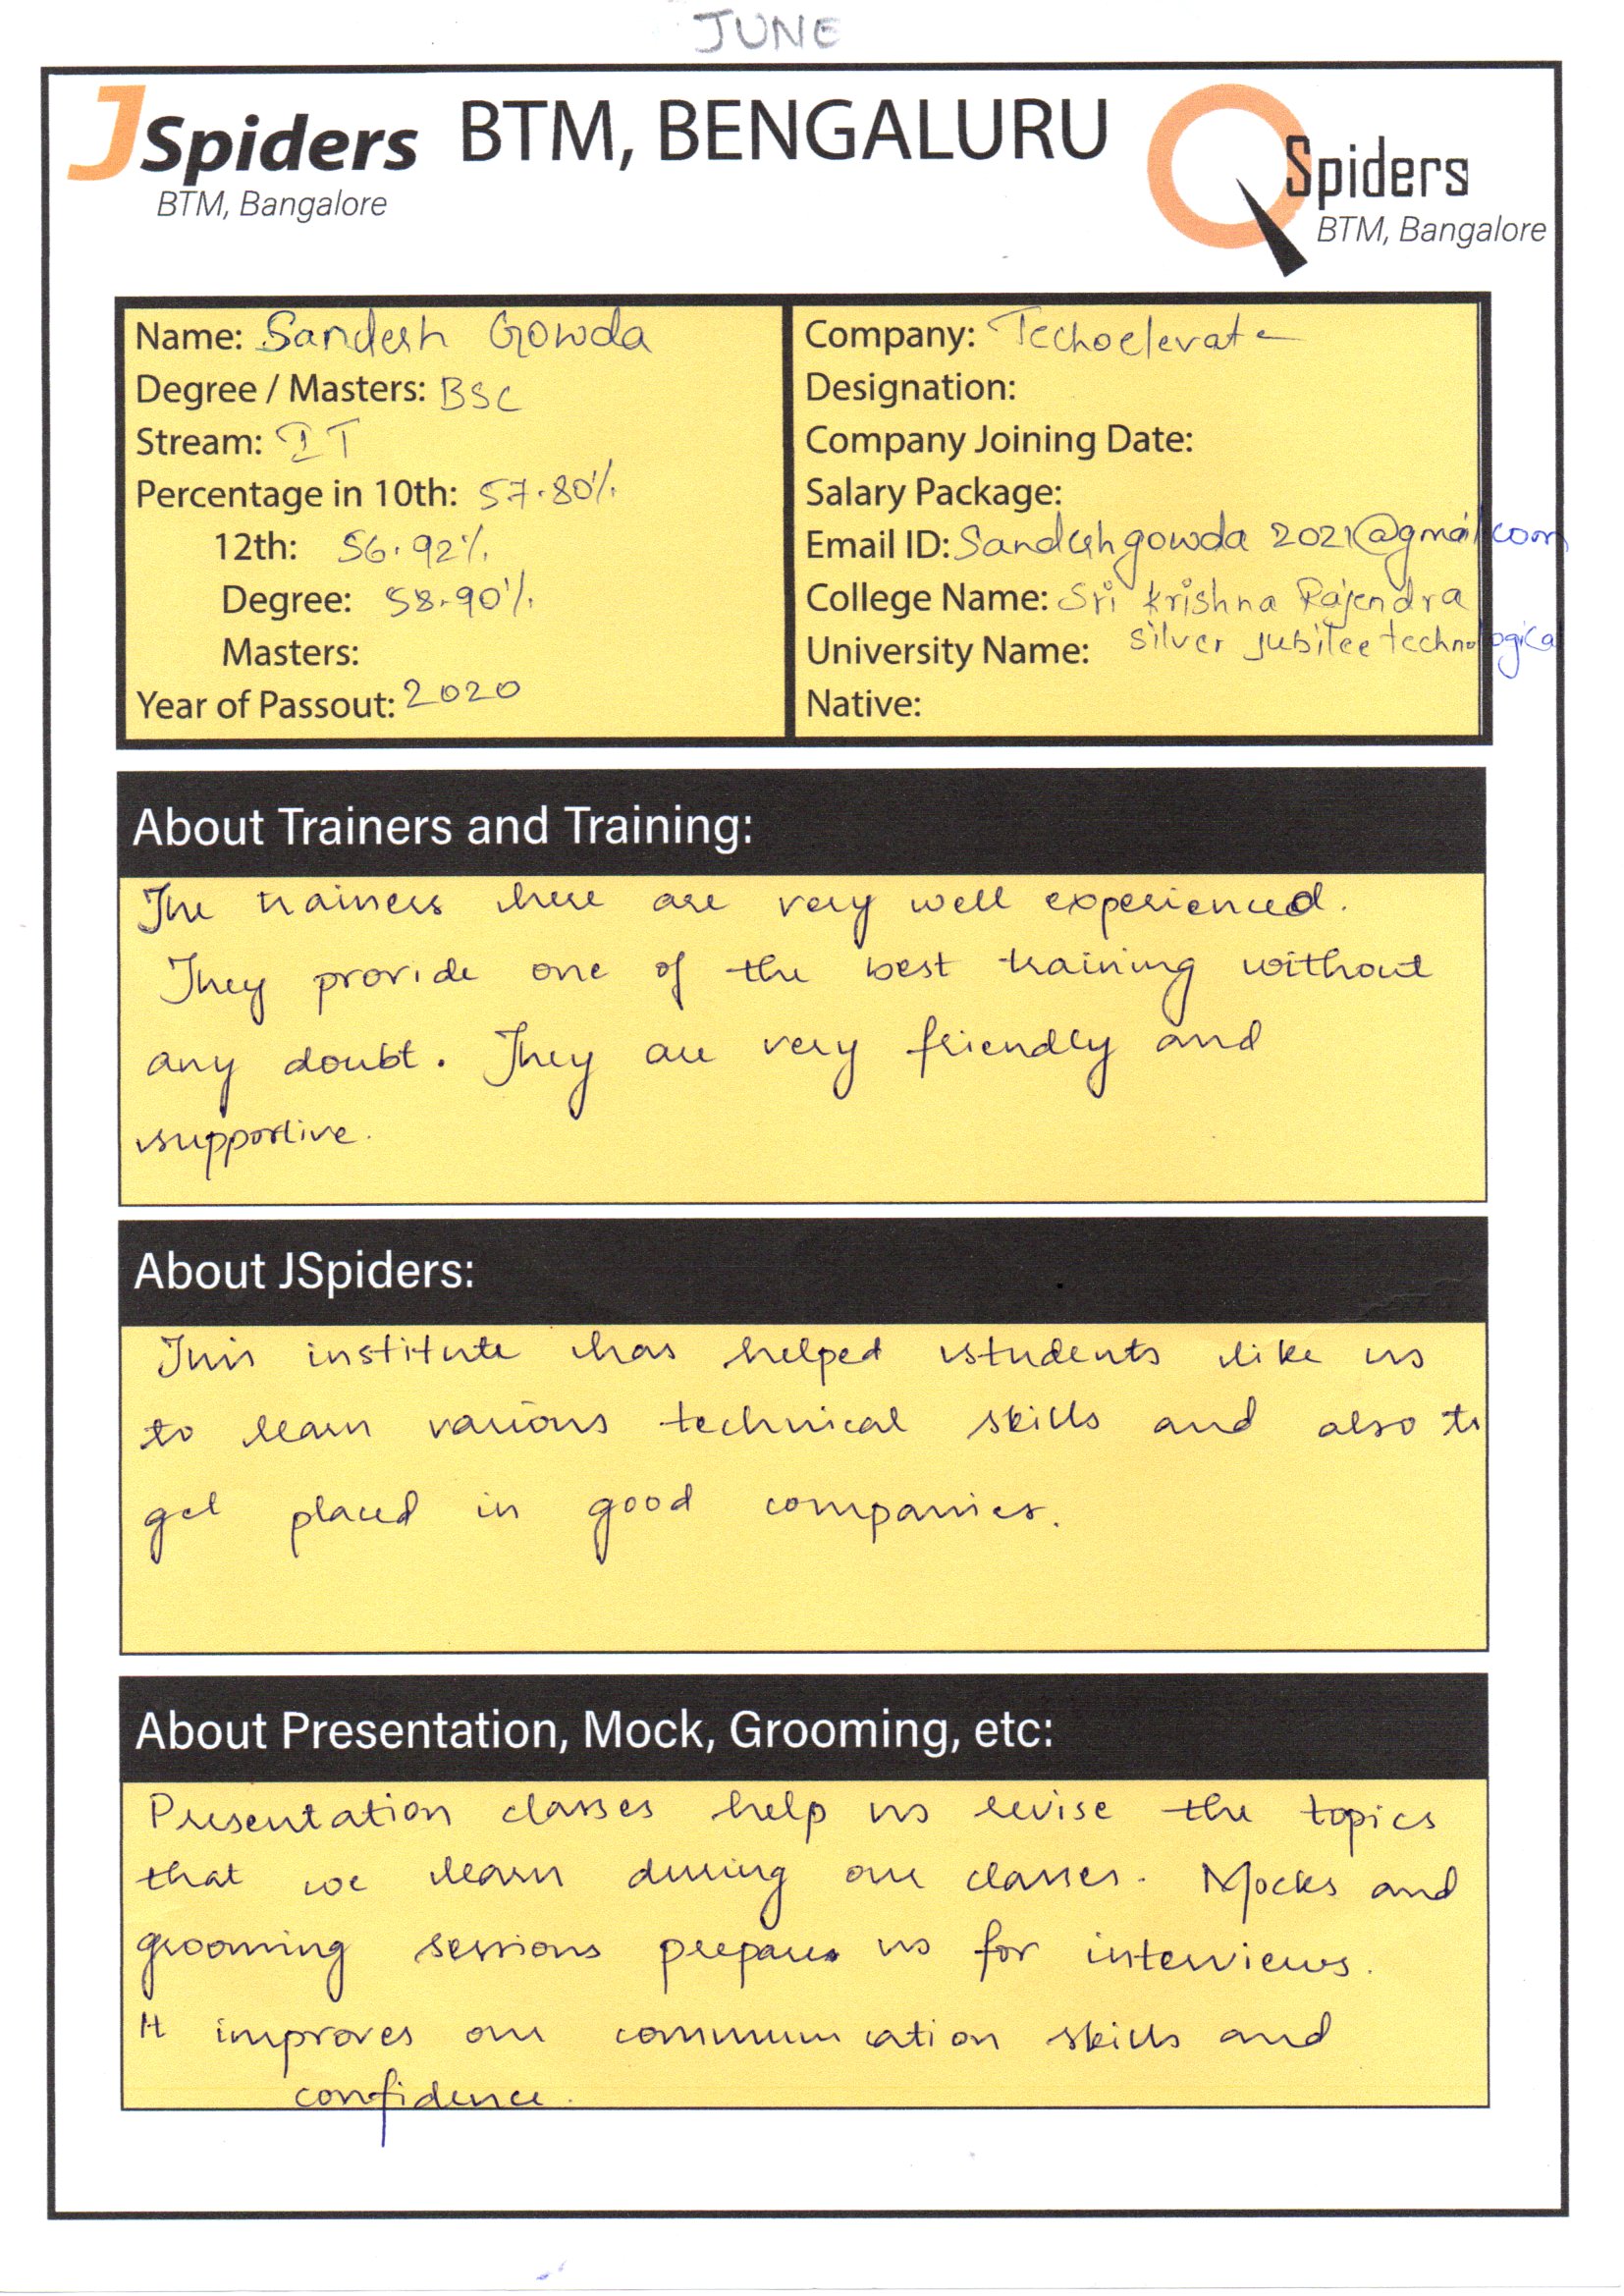 JUNE
JSpiders
BTM, Bangalore
BTM, BENGALURU
Spiders
BTM, Bangalore
Name: Sandesh Gowda
Degree / Masters: BSC
Stream: IT
Percentage in 10th: 57.80%
12th: 56.92%
Degree: 58.90%
Masters:
Year of Passout: 2020
Company: Techoelevate
Designation:
Company Joining Date:
Salary Package:
Email ID: Sandeshgowda2021@gmail.com
College Name: Sri Krishna Rajendra
silver jubilee technological
University Name:
Native:
About Trainers and Training:
The trainers here are very well experienced.
They provide one of the best training without
any doubt. They are very friendly and
supportive.
About JSpiders:
This institute has helped students like us
to learn various technical skills and also to
get placed in good companies.
About Presentation, Mock, Grooming, etc:
Presentation classes help us revise the topics
that we learn during our classes. Mocks and
grooming sessions prepare us for interviews.
It improves our communication skills and
confidence.